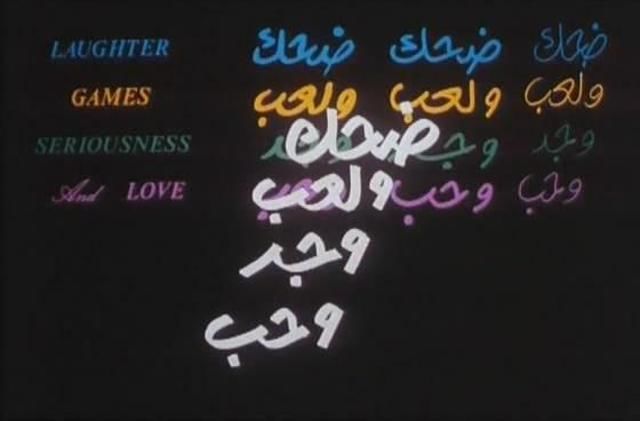 LAUGHTER ضحك ضحك ضحك
GAMES ولعب ولعب ولعب
SERIOUSNESS وجد وجد وجد
And LOVE وحب وحب وحب
ضحك
ولعب
وجد
وحب